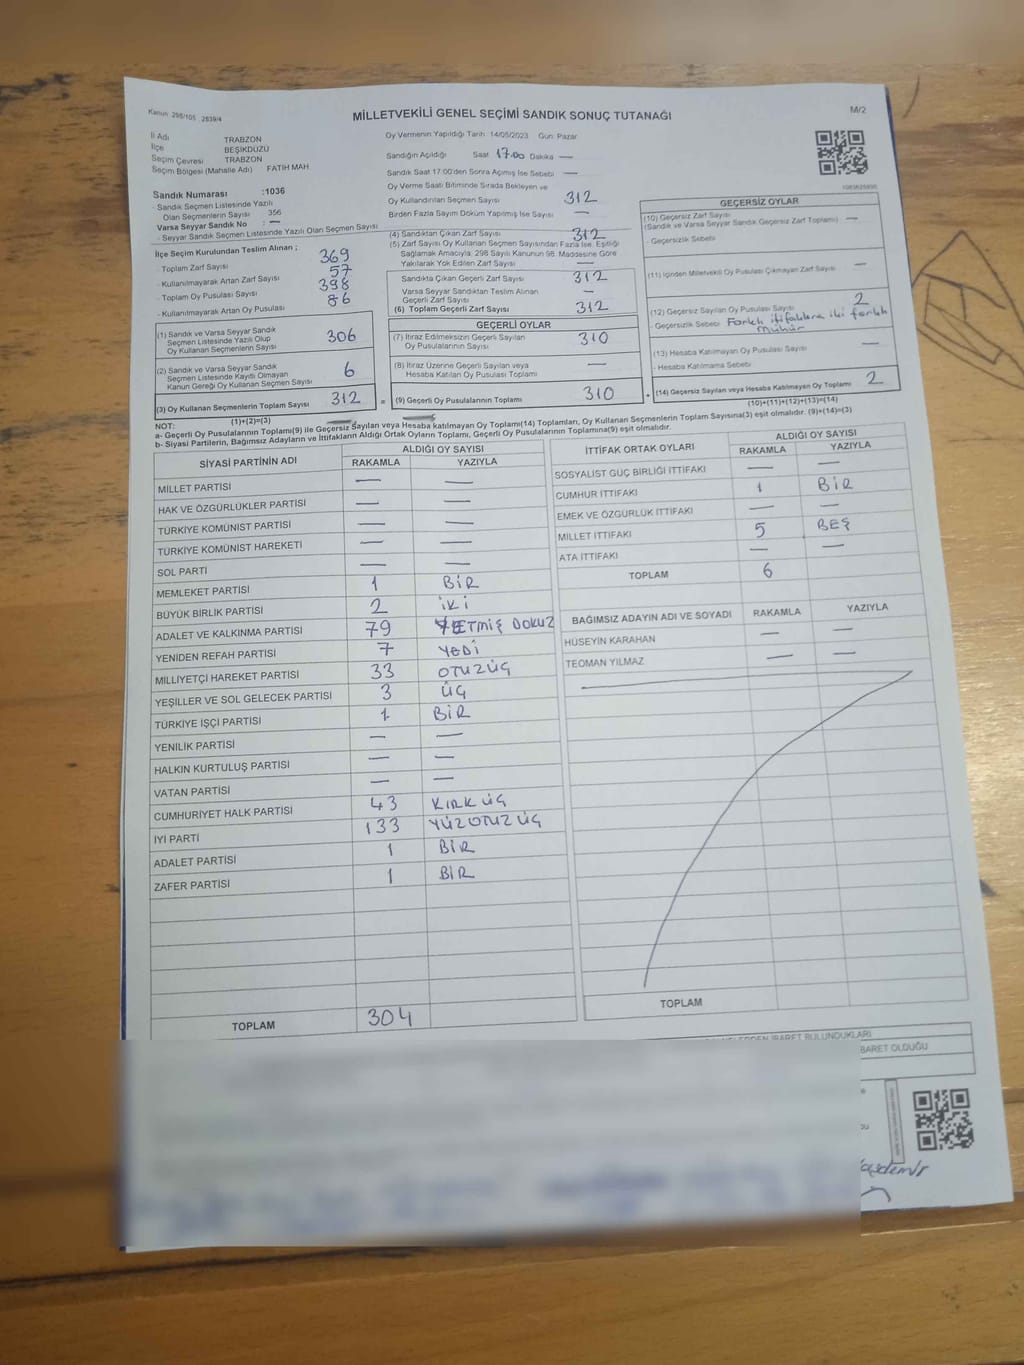 Kanun 298/105 , 2839/4
MİLLETVEKİLİ GENEL SEÇİMİ SANDIK SONUÇ TUTANAĞI
M/2
İl Adı TRABZON
İlçe BEŞİKDÜZÜ
Seçim Çevresi TRABZON
Seçim Bölgesi (Mahalle Adı) FATİH MAH
Sandık Numarası :1036
- Sandık Seçmen Listesinde Yazılı
Olan Seçmenlerin Sayısı 356
Varsa Seyyar Sandık No : —
- Seyyar Sandık Seçmen Listesinde Yazılı Olan Seçmen Sayısı
İlçe Seçim Kurulundan Teslim Alınan ;
- Toplam Zarf Sayısı 369
- Kullanılmayarak Artan Zarf Sayısı 57
- Toplam Oy Pusulası Sayısı 398
- Kullanılmayarak Artan Oy Pusulası 86
(1) Sandık ve Varsa Seyyar Sandık
Seçmen Listesinde Yazılı Olup
Oy Kullanan Seçmenlerin Sayısı 306
(2) Sandık ve Varsa Seyyar Sandık
Seçmen Listesinde Kayıtlı Olmayan
Kanun Gereği Oy Kullanan Seçmen Sayısı 6
(3) Oy Kullanan Seçmenlerin Toplam Sayısı 312
(1)+(2)=(3)
Oy Vermenin Yapıldığı Tarih: 14/05/2023 Gün: Pazar
Sandığın Açıldığı Saat 17.00 Dakika —
Sandık Saat 17.00'den Sonra Açılmış İse Sebebi —
Oy Verme Saati Bitiminde Sırada Bekleyen ve
Oy Kullandırılan Seçmen Sayısı 312
Birden Fazla Sayım Döküm Yapılmış İse Sayısı —
(4) Sandıktan Çıkan Zarf Sayısı 312
(5) Zarf Sayısı Oy Kullanan Seçmen Sayısından Fazla İse, Eşitliği
Sağlamak Amacıyla, 298 Sayılı Kanunun 98. Maddesine Göre
Yakılarak Yok Edilen Zarf Sayısı —
Sandıkta Çıkan Geçerli Zarf Sayısı 312
Varsa Seyyar Sandıktan Teslim Alınan
Geçerli Zarf Sayısı —
(6) Toplam Geçerli Zarf Sayısı 312
GEÇERLİ OYLAR
(7) İtiraz Edilmeksizin Geçerli Sayılan
Oy Pusulalarının Sayısı 310
(8) İtiraz Üzerine Geçerli Sayılan veya
Hesaba Katılan Oy Pusulası Toplamı —
= (9) Geçerli Oy Pusulalarının Toplamı 310
1083625930
GEÇERSİZ OYLAR
(10) Geçersiz Zarf Sayısı —
(Sandık ve Varsa Seyyar Sandık Geçersiz Zarf Toplamı)
- Geçersizlik Sebebi
(11) İçinden Milletvekili Oy Pusulası Çıkmayan Zarf Sayısı —
(12) Geçersiz Sayılan Oy Pusulası Sayısı 2
- Geçersizlik Sebebi Farklı ittifaklara iki farklı
mühür
(13) Hesaba Katılmayan Oy Pusulası Sayısı —
- Hesaba Katılmama Sebebi
+ (14) Geçersiz Sayılan veya Hesaba Katılmayan Oy Toplamı 2
(10)+(11)+(12)+(13)=(14)
NOT:
a- Geçerli Oy Pusulalarının Toplamı(9) ile Geçersiz Sayılan veya Hesaba katılmayan Oy Toplamı(14) Toplamları, Oy Kullanan Seçmenlerin Toplam Sayısına(3) eşit olmalıdır. (9)+(14)=(3)
b- Siyasi Partilerin, Bağımsız Adayların ve İttifakların Aldığı Ortak Oyların Toplamı, Geçerli Oy Pusulalarının Toplamına(9) eşit olmalıdır.
SİYASİ PARTİNİN ADI ALDIĞI OY SAYISI
RAKAMLA YAZIYLA
MİLLET PARTİSİ — —
HAK VE ÖZGÜRLÜKLER PARTİSİ — —
TÜRKİYE KOMÜNİST PARTİSİ — —
TÜRKİYE KOMÜNİST HAREKETİ — —
SOL PARTİ — —
MEMLEKET PARTİSİ 1 BİR
BÜYÜK BİRLİK PARTİSİ 2 İKİ
ADALET VE KALKINMA PARTİSİ 79 YETMİŞ DOKUZ
YENİDEN REFAH PARTİSİ 7 YEDİ
MİLLİYETÇİ HAREKET PARTİSİ 33 OTUZÜÇ
YEŞİLLER VE SOL GELECEK PARTİSİ 3 ÜÇ
TÜRKİYE İŞÇİ PARTİSİ 1 BİR
YENİLİK PARTİSİ — —
HALKIN KURTULUŞ PARTİSİ — —
VATAN PARTİSİ — —
CUMHURİYET HALK PARTİSİ 43 KIRK ÜÇ
İYİ PARTİ 133 YÜZOTUZ ÜÇ
ADALET PARTİSİ 1 BİR
ZAFER PARTİSİ 1 BİR
TOPLAM 304
İTTİFAK ORTAK OYLARI ALDIĞI OY SAYISI
RAKAMLA YAZIYLA
SOSYALİST GÜÇ BİRLİĞİ İTTİFAKI — —
CUMHUR İTTİFAKI 1 BİR
EMEK VE ÖZGÜRLÜK İTTİFAKI — —
MİLLET İTTİFAKI 5 BEŞ
ATA İTTİFAKI — —
TOPLAM 6
BAĞIMSIZ ADAYIN ADI VE SOYADI RAKAMLA YAZIYLA
HÜSEYİN KARAHAN — —
TEOMAN YILMAZ — —
TOPLAM
İBARET BULUNDUKLARI
BARET OLDUĞU